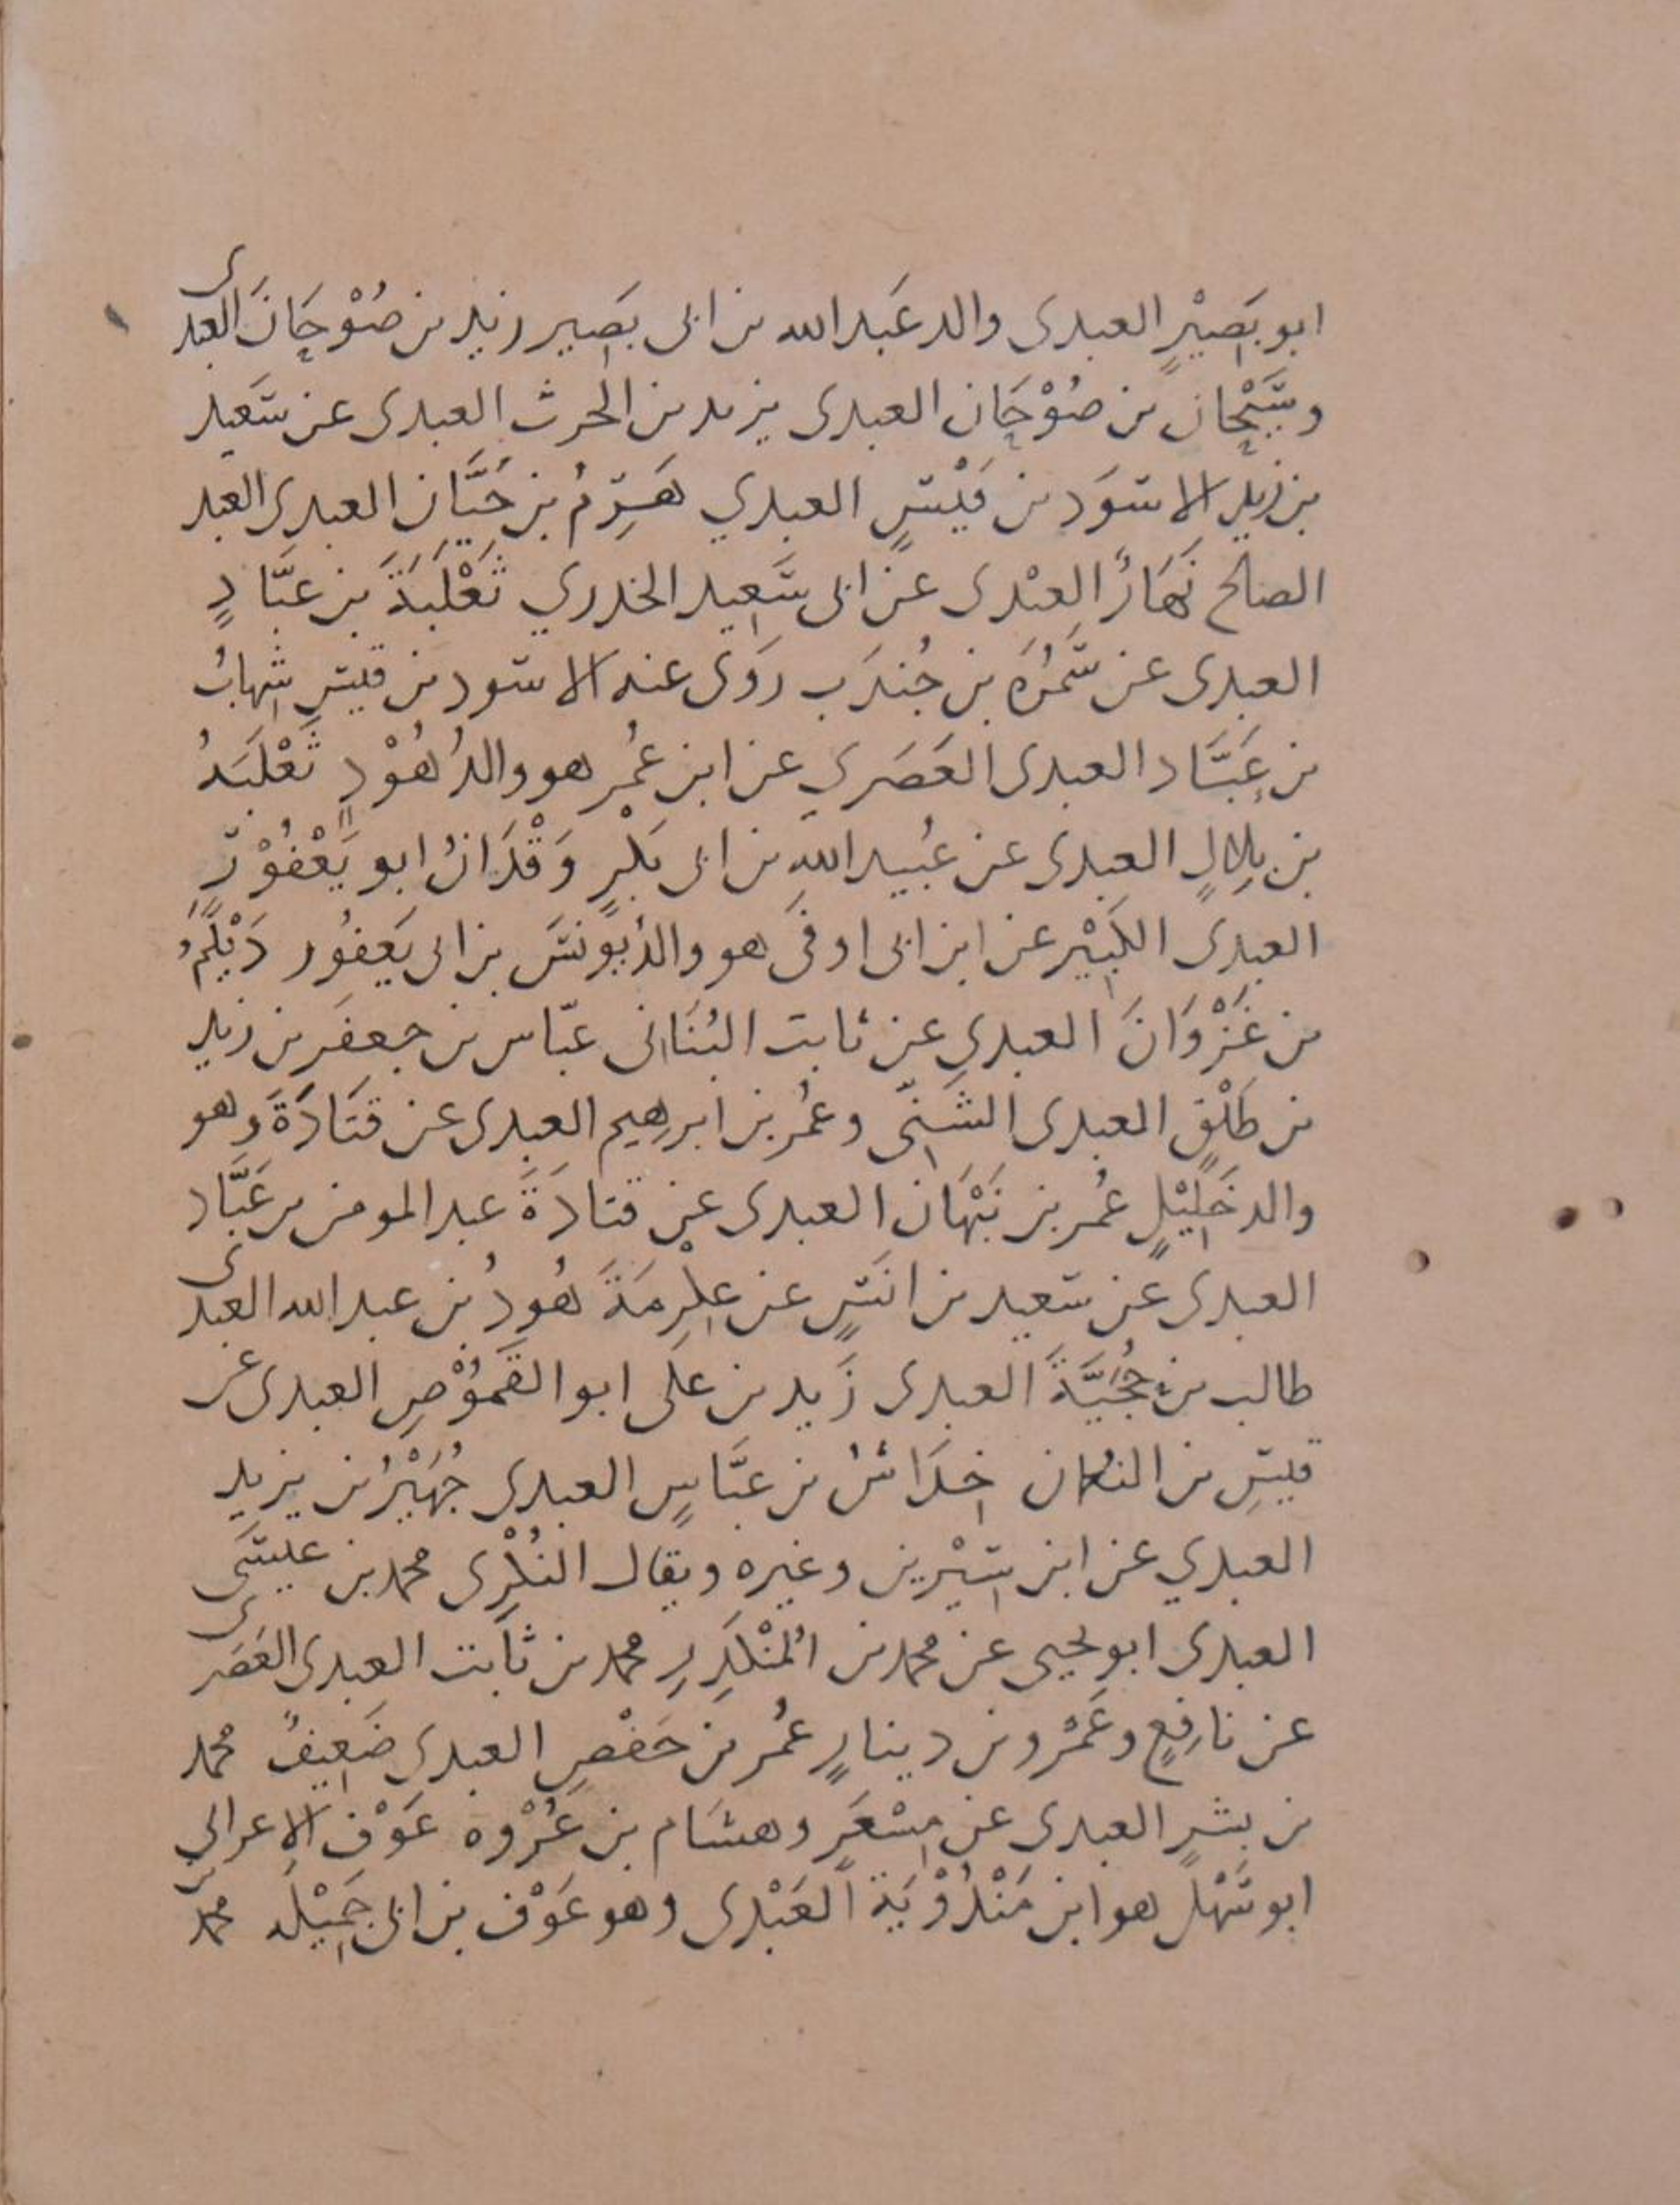 ابو بَصِيْرٍ العبدى والد عَبد الله بن ابى بَصِير زيد بن صُوْحَانَ العبدى
وسَيْحان بن صُوْحَان العبدى يزيد بن الحرث العبدى عن سَعيد
بن زيد الاسوَد بن قَيْسٍ العبدي هَرِمُ بن حَيَّان العبدى العبد
الصالح نَهَارٌ العبْدى عن ابى سَعِيد الخدري ثَعْلَبَةَ بن عبَّادٍ
العبدى عن سَمُرَةَ بن جُندَب رَوَى عنه الاسود بن قيسٍ شِهابُ
بن عَبَّاد العبدى العَصَرِي عن ابن عُمر هو والدُ هُوْدٍ ثَعْلَبَةُ
بن بِلالٍ العبدى عن عُبيد اللهِ بن ابى بَكْرٍ وَقْدَانُ ابو يَعْفُوْرٍ
العبدى الكَبِيْر عن ابن ابى اوفَى هو والدُ يونسَ بن ابى يَعفُور دَيْلَمُ
بن غَزْوَانَ العبدي عن ثابت البُنَانى عبّاس بن جعفَر بن زيد
بن طَلْقٍ العبدى الشَنِىّ وعُمر بن ابرهيم العبدى عن قتَادَةَ وهو
والد خَلِيْلٍ عُمر بن نَبْهَان العبدى عن قتادَةَ عبد المومن بن عَبَّاد
العبدى عن سَعيد بن انَسٍ عن عِكْرِمَةَ هُودُ بن عبد الله العبدى
طالب بن حُجَيَّةَ العبدى زَيد بن على ابو القَمُوْصِ العبدى عن
قيسِ بن النعمان خِدَاشُ بن عبَّاسٍ العبدى جُهَيْرُ بن يزيد
العبدي عن ابن سِيْرين وغيره ويقال النُكْرِى محمد بن عيسَى
العبدى ابو يحيى عن محمد بن المُنْكَدِرِ محمد بن ثابت العبدى العَصَرى
عن نافِعٍ وعَمْرو بن دينارٍ عُمر بن حَفْصٍ العبدى ضَعِيفٌ محمد
بن بشرٍ العبدى عن مِسْعَرٍ وهشَام بن عُرْوه عَوْف الاعرابى
ابو سَهْل هو ابن مَنْدُوْيَة العَبْدى وهو عَوْف بن ابى جَمِيْلَه محمد بن